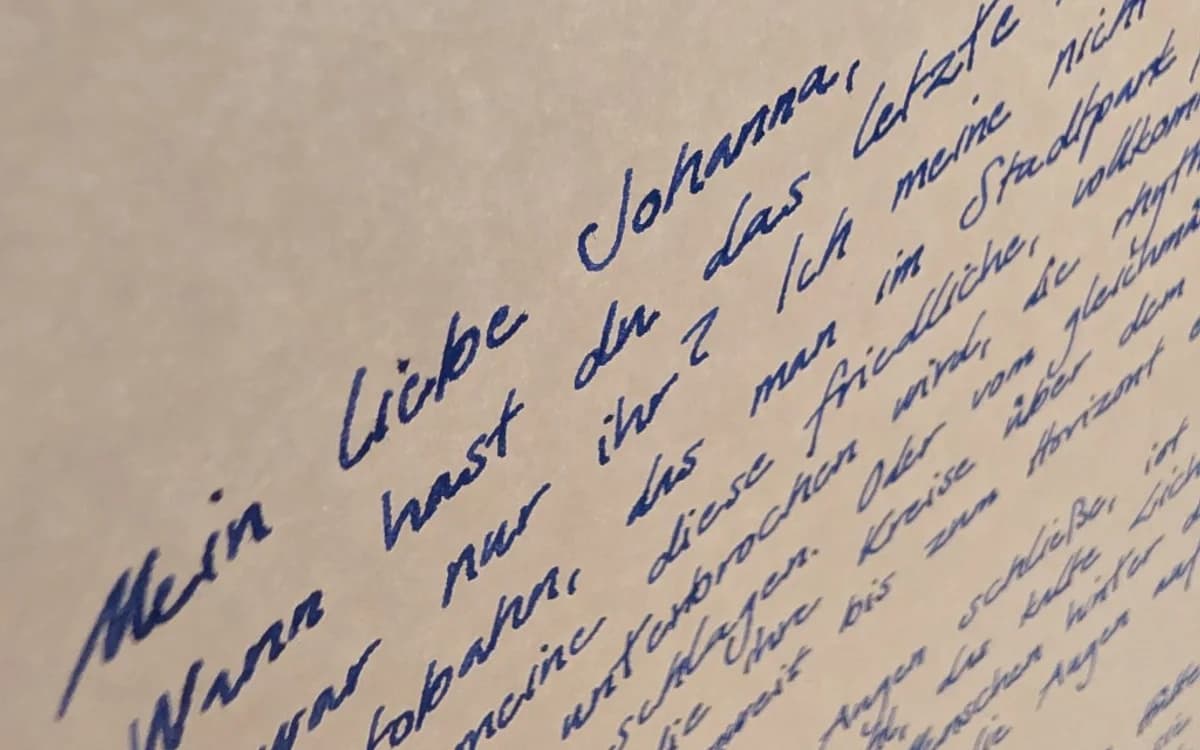 Mein liebe Johanna,
Wann hast du das letzte
war nur ihr? Ich meine nicht
das man im Stadtpark
meine diese friedliche, vollkom
unterbrochen wird, die rhyth
schlagen. Oder vom gleichmä
die ihre Kreise über dem
bis zum Horizont
Augen schließe, ist
das kalte Lich
Menschen hinter
die Augen auf